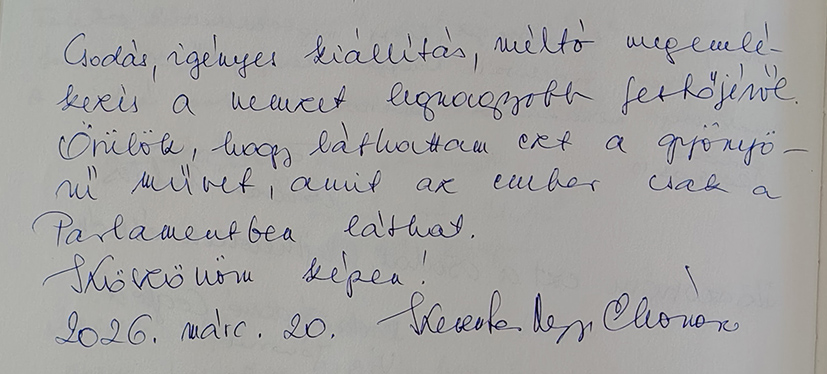 Csodás, igényes kiállítás, méltó megemlé-
kezés a nemzet legnagyobb festőjéről.
Örülök, hogy láthattam ezt a gyönyö-
rű művet, amit az ember csak a
Parlamentben láthat.
szépen!
2026. márc. 20.